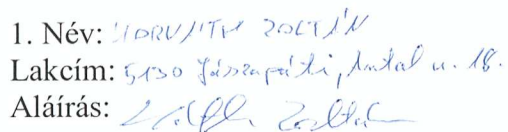 1. Név: HORVÁTH ZOLTÁN
Lakcím: 5130 Jászapáti, Antal u. 18.
Aláírás: Horváth Zoltán